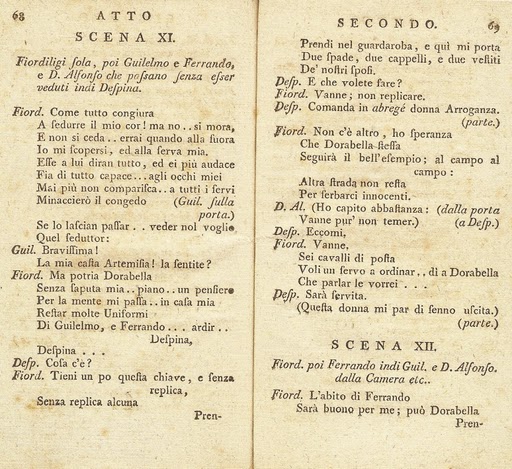 68
ATTO
SCENA XI.
Fiordiligi sola, poi Guilelmo e Ferrando,
e D. Alfonso che passano senza esser
veduti indi Despina.
Fiord. Come tutto congiura
A sedurre il mio cor! ma no.. si mora,
E non si ceda.. errai quando alla suora
Io mi scopersi, ed alla serva mia.
Esse a lui diran tutto, ed ei più audace
Fia di tutto capace... agli occhi miei
Mai più non comparisca.. a tutti i servi
Minaccierò il congedo (Guil. sulla
porta.)
Se lo lascian passar.. veder nol voglio
Quel seduttor:
Guil. Bravissima!
La mia casta Artemisia! la sentite?
Fiord. Ma potria Dorabella
Senza saputa mia.. piano.. un pensiero
Per la mente mi passa.. in casa mia
Restar molte Uniformi
Di Guilelmo, e Ferrando... ardir..
Despina,
Despina...
Desp. Cosa c'è?
Fiord. Tieni un po questa chiave, e senza
replica,
Senza replica alcuna
Pren-
SECONDO.
69
Prendi nel guardaroba, e quì mi porta
Due spade, due cappelli, e due vestiti
De' nostri sposi.
Desp. E che volete fare?
Fiord. Vanne; non replicare.
Desp. Comanda in abregé donna Arroganza.
(parte.)
Fiord. Non c'è altro, ho speranza
Che Dorabella stessa
Seguirà il bell'esempio; al campo al
campo:
Altra strada non resta
Per serbarci innocenti.
D. Al. (Ho capito abbastanza: (dalla porta
Vanne pur' non temer.) (a Desp.)
Desp. Eccomi,
Fiord. Vanne,
Sei cavalli di posta
Voli un servo a ordinar.. di a Dorabella
Che parlar le vorrei ...
Desp. Sarà servita.
(Questa donna mi par di senno uscita.)
(parte.)
SCENA XII.
Fiord. poi Ferrando indi Guil. e D. Alfonso.
dalla Camera etc..
Fiord. L'abito di Ferrando
Sarà buono per me; può Dorabella
Pren-